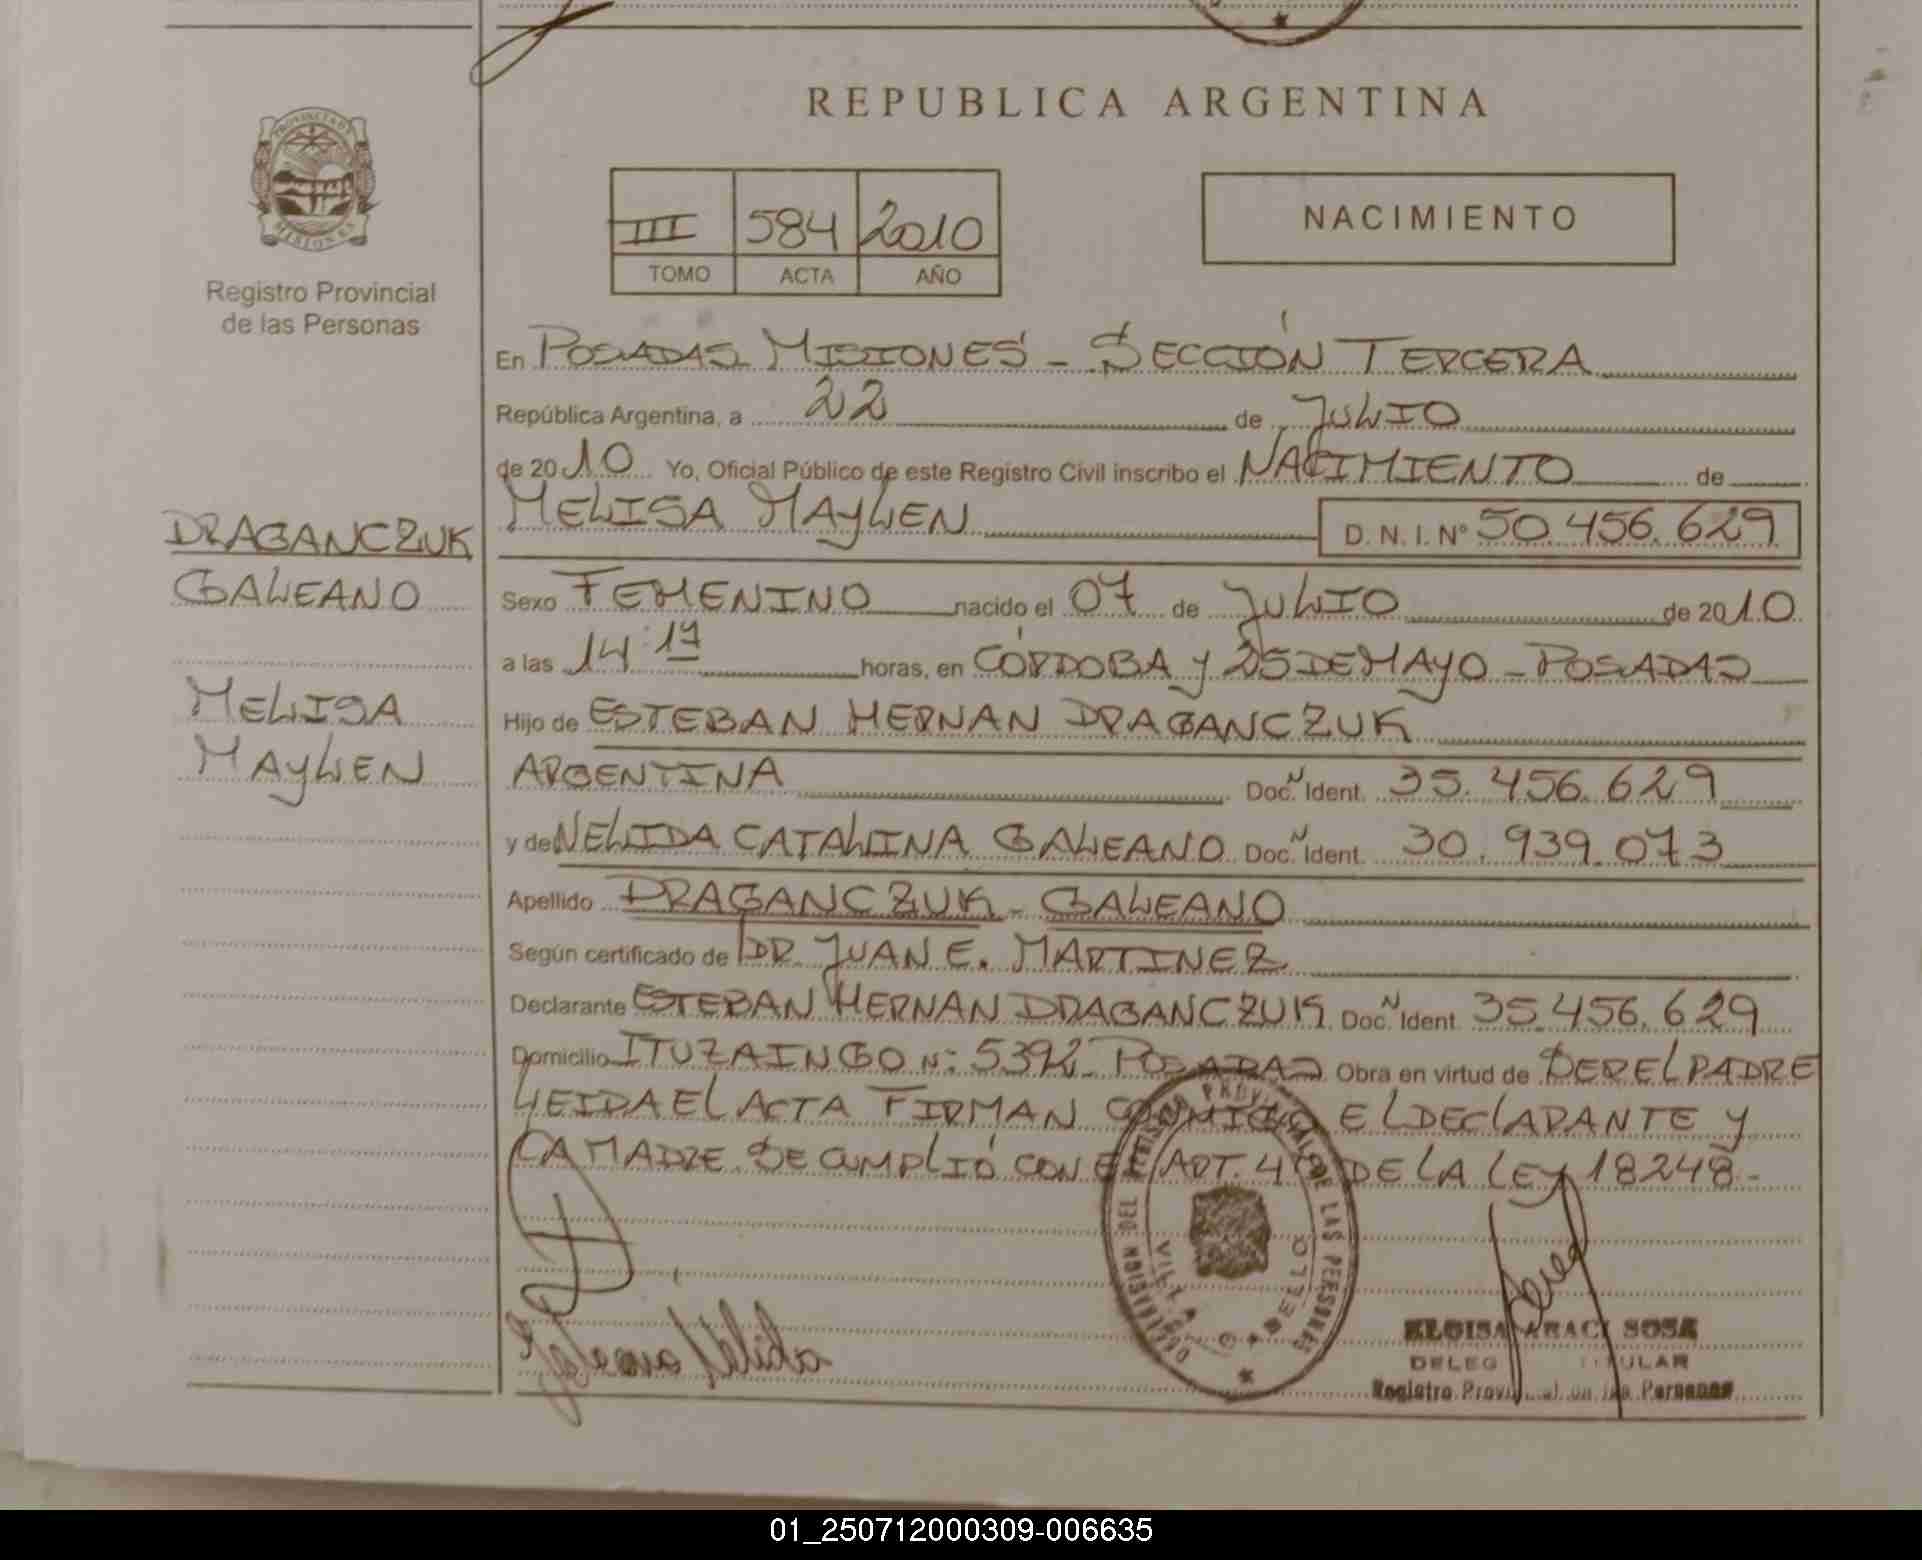 REPUBLICA ARGENTINA
PROVINCIA DE
MISIONES
Registro Provincial
de las Personas
III 584 2010
TOMO ACTA AÑO
NACIMIENTO
En POSADAS MISIONES - SECCIÓN TERCERA
República Argentina, a 22 de JULIO
de 2010 Yo, Oficial Público de este Registro Civil inscribo el NACIMIENTO de
MELISA MAYLEN D. N. I. Nº 50.456.629
DRAGANCZUK
GALEANO
MELISA
MAYLEN
Sexo FEMENINO nacido el 07 de JULIO de 2010
a las 14:19 horas, en CÓRDOBA y 25 DE MAYO - POSADAS
Hijo de ESTEBAN HERNAN DRAGANCZUK
ARGENTINA Doc. Ident. 35.456.629
y de NELIDA CATALINA GALEANO Doc. Ident. 30.939.073
Apellido DRAGANCZUK - GALEANO
Según certificado de DR. JUAN E. MARTINEZ
Declarante ESTEBAN HERNAN DRAGANCZUK Doc. Ident. 35.456.629
Domicilio ITUZAINGO N: 5392 - POSADAS Obra en virtud de SER EL PADRE
LEIDA EL ACTA FIRMAN CONMIGO EL DECLARANTE Y
LA MADRE SE CUMPLIÓ CON EL ART. 4 DE LA LEY 18248.-
DELEGACION DEL REGISTRO PROVINCIAL DE LAS PERSONAS
VILLA BELLO
Galeano Nelida
ELOISA ARACI SOSA
DELEG TITULAR
Registro Provincial de las Personas
01_250712000309-006635